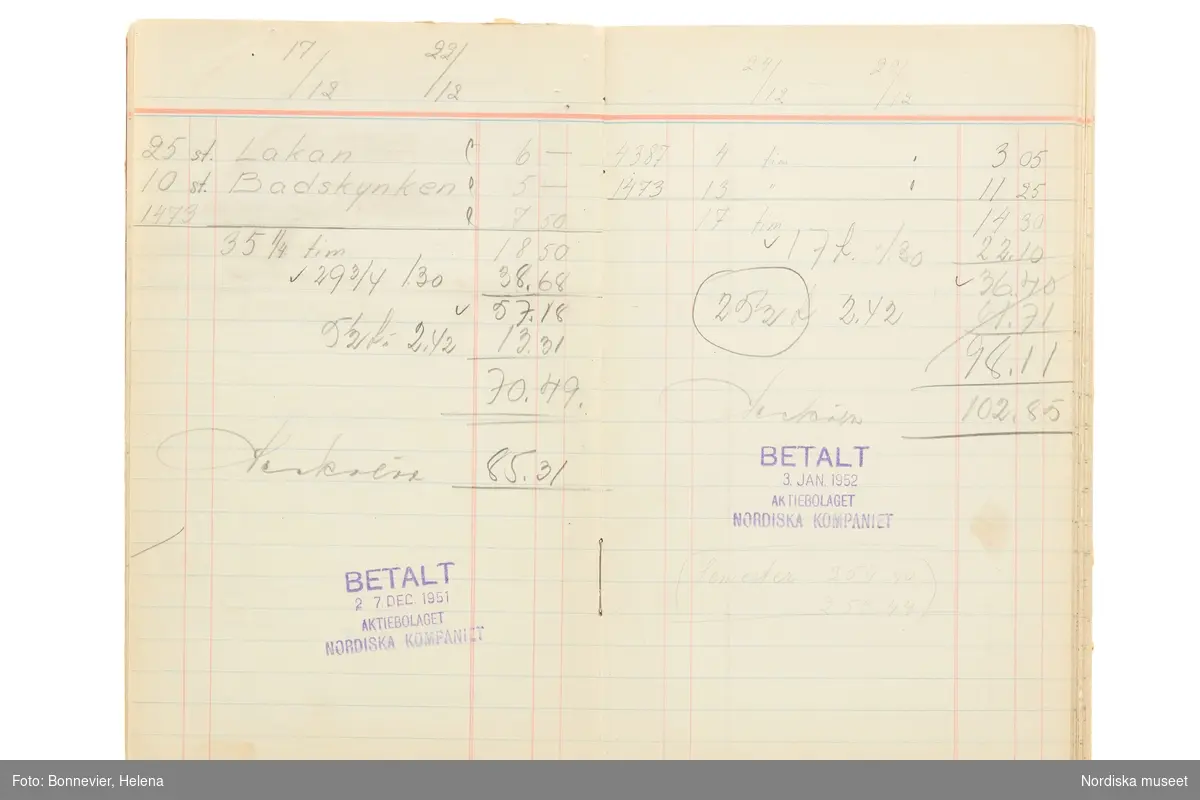 17/12 22/12
25 st. Lakan 6 —
10 st. Badskynken 5 —
1473 7 50
35 1/4 tim 18 50
✓ 29 3/4 1.30 38.68
✓ 57.18
5 1/2 2.42 13.31
70.49.
85.31
BETALT
27 DEC. 1951
AKTIEBOLAGET
NORDISKA KOMPANIET
4387 4 tim 3 05
1473 13 " 11 25
17 tim 14 30
✓ 17 1.30 22.10
✓ 36.40
25 1/2 2.42 61.71
98.11
102.85
BETALT
3. JAN. 1952
AKTIEBOLAGET
NORDISKA KOMPANIET
Foto: Bonnevier, Helena
Nordiska museet